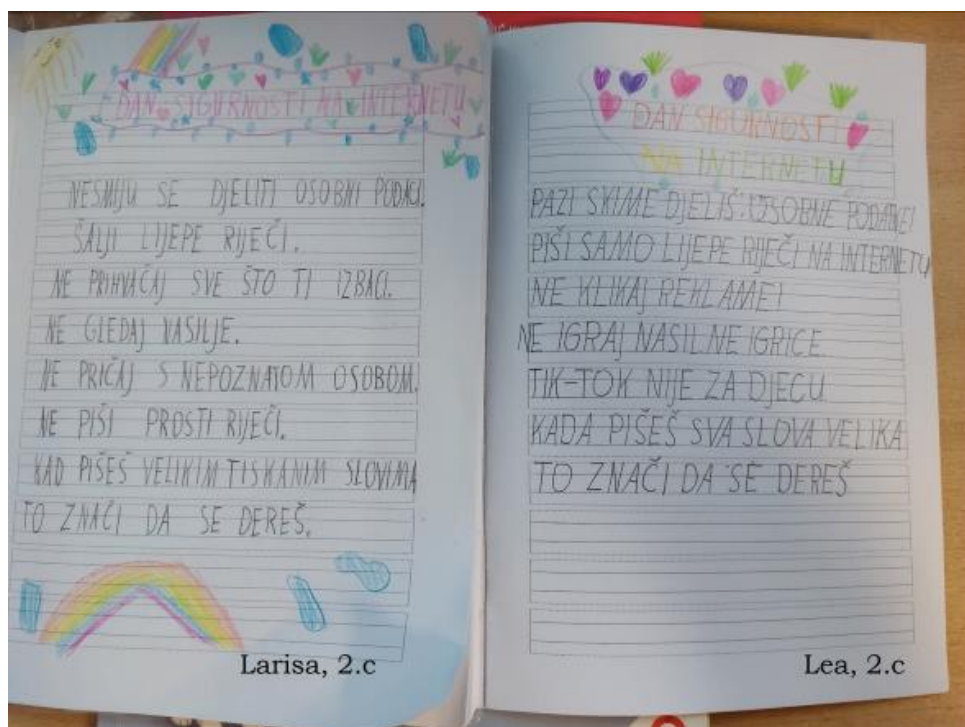 DAN SIGURNOSTI NA INTERNETU
NESMIJU SE DJELITI OSOBNI PODACI.
ŠALJI LIJEPE RIJEČI.
NE PRIHVAĆAJ SVE ŠTO TI IZBACI.
NE GLEDAJ NASILJE.
NE PRIČAJ S NEPOZNATOM OSOBOM.
NE PIŠI PROSTI RIJEČI.
KAD PIŠEŠ VELIKIM TISKANIM SLOVIMA
TO ZNAČI DA SE DEREŠ.
Larisa, 2.c
DAN SIGURNOSTI
NA INTERNETU
PAZI SKIME DJELIŠ OSOBNE PODATKE!
PIŠI SAMO LIJEPE RIJEČI NA INTERNETU
NE KLIKAJ REKLAME!
NE IGRAJ NASILNE IGRICE
TIK-TOK NIJE ZA DJECU
KADA PIŠEŠ SVA SLOVA VELIKA
TO ZNAČI DA SE DEREŠ
Lea, 2.c